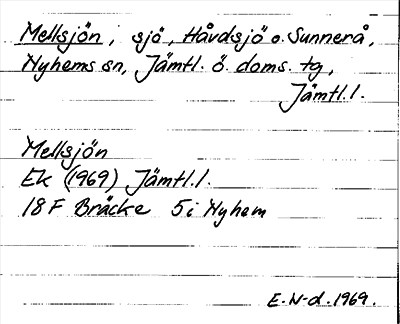 Mellsjön, sjö, Håvdsjö o. Sunnerå,
Nyhems sn, Jämtl. ö. doms. tg,
Jämtl.l.
Mellsjön
Ek (1969) Jämtl.l.
18F Bräcke 5i Nyhem
E.N-d. 1969.